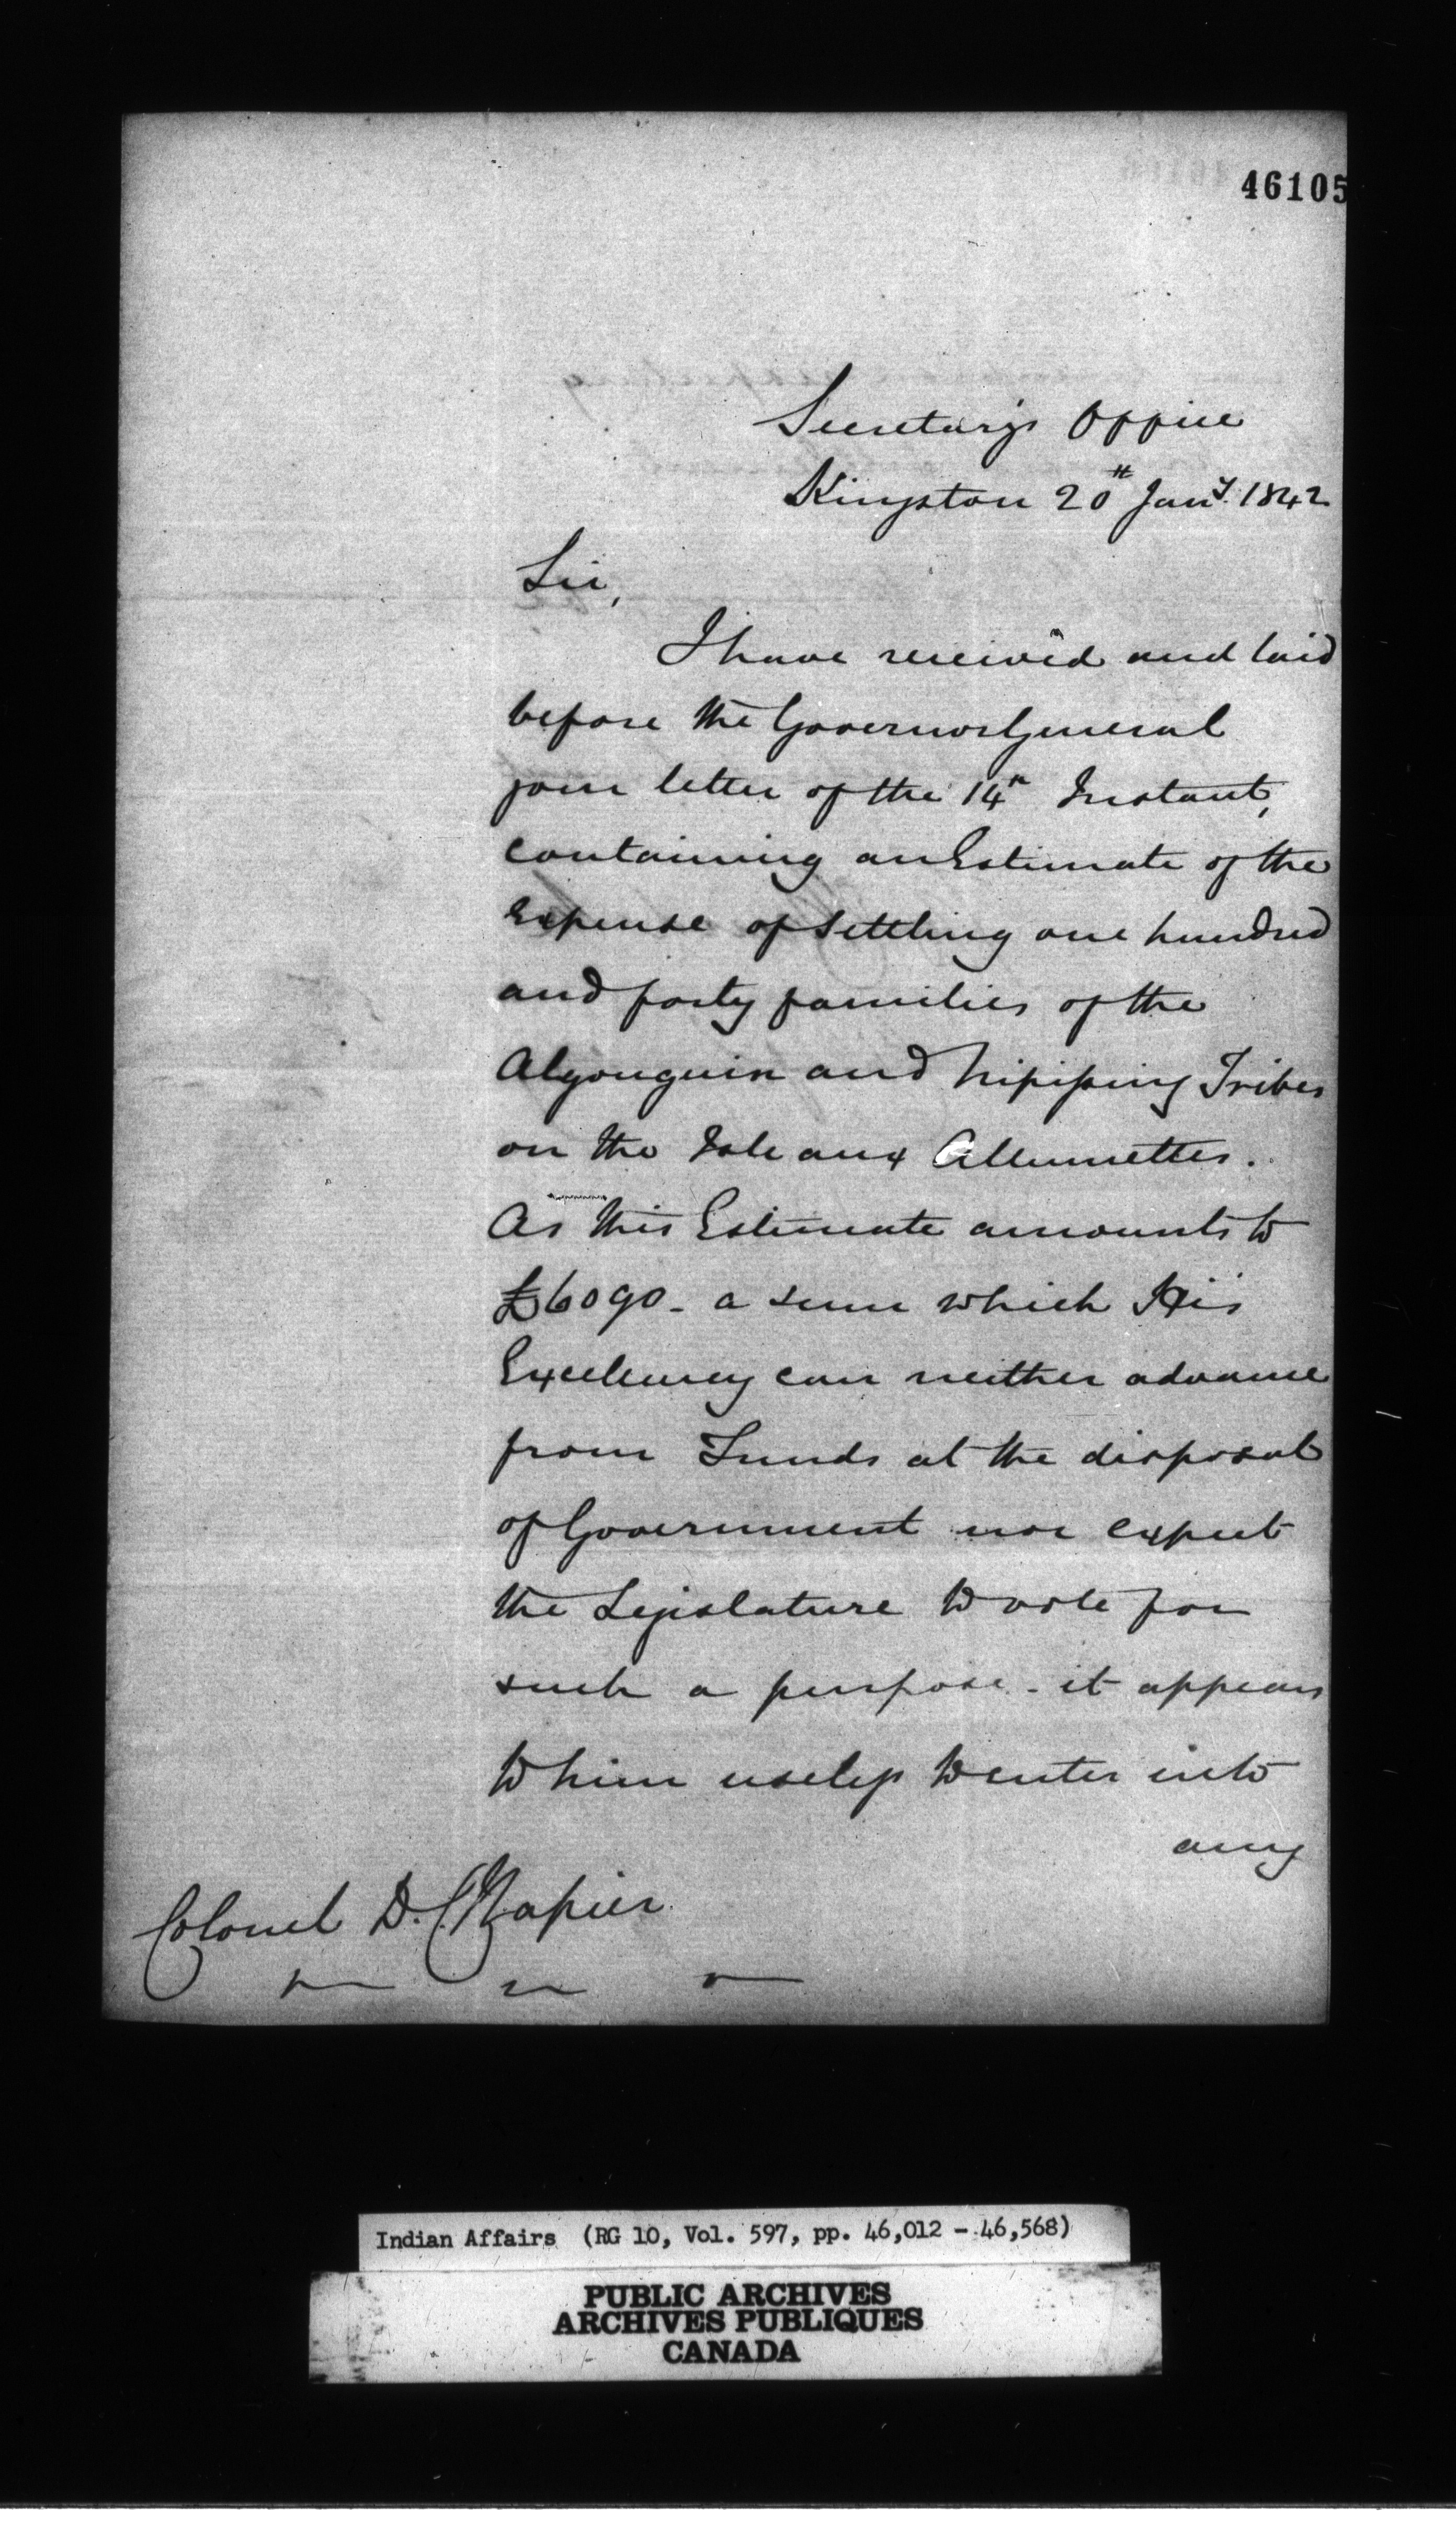 46105
Secretary's Office
Kingston 20th Jany. 1842
Sir,
I have received and laid
before the Governor General
your letter of the 14th Instant,
containing an Estimate of the
Expense of settling one hundred
and forty families of the
Algonquin and Nipissing Tribes
on the Isle aux Allumettes.
As this Estimate amounts to
£6090 - a sum which His
Excellency can neither advance
from Funds at the disposal
of Government nor expect
the Legislature to vote for
such a purpose - it appears
to him useless to enter into
any
Colonel D. C. Napier
Indian Affairs (RG 10, Vol. 597, pp. 46,012 - 46,568)
PUBLIC ARCHIVES
ARCHIVES PUBLIQUES
CANADA